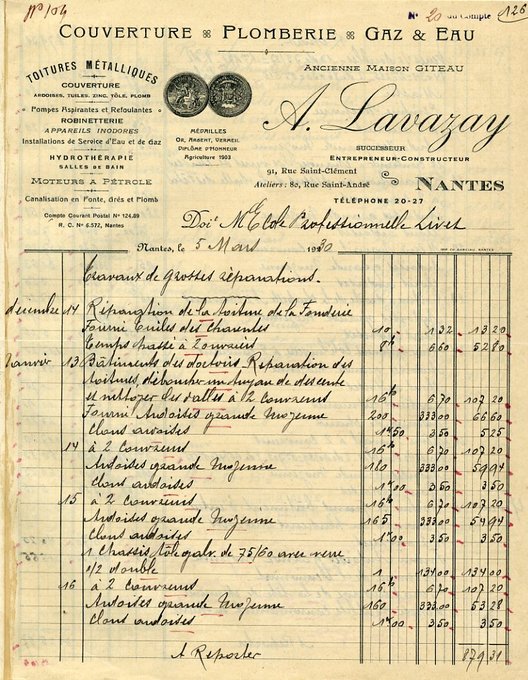 Nº 104
Nº 20 du Compte 126
COUVERTURE PLOMBERIE GAZ & EAU
TOITURES MÉTALLIQUES
COUVERTURE
ARDOISES, TUILES, ZINC, TÔLE, PLOMB
Pompes Aspirantes et Refoulantes
ROBINETTERIE
APPAREILS INODORES
Installations de Service d'Eau et de Gaz
HYDROTHÉRAPIE
SALLES DE BAIN
MOTEURS A PÉTROLE
Canalisation en Fonte, Grès et Plomb
Compte Courant Postal Nº 124.89
R. C. Nº 6.572, Nantes
MÉDAILLES
OR, ARGENT, VERMEIL
DIPLÔME D'HONNEUR
Agriculture 1903
ANCIENNE MAISON GITEAU
A. Lavazay
SUCCESSEUR
ENTREPRENEUR-CONSTRUCTEUR
91, Rue Saint-Clément
Ateliers: 82, Rue Saint-André
NANTES
TÉLÉPHONE 20-27
Doit M École Professionnelle Livet
Nantes, le 5 Mars 1930
Travaux de Grosses réparations.
décembre 14 Réparation de la toiture de la Fonderie
Fourni tuiles des Charentes 10 1 32 13 20
Temps passé à 2 ouvriers 8h 6 60 52 80
Janvier 13 Bâtiments des Réparation des
toitures, déboucher un tuyau de descente
et nettoyer des dalles à 2 Couvreurs 16h 6 70 107 20
Fourni Ardoises grande Moyenne 200 333.00 66 60
Clous ardoises 1k50 3 50 5 25
14 à 2 Couvreurs 16h 6 70 107 20
Ardoises grande Moyenne 180 333.00 59 94
Clous ardoises 1k00 3 50 3 50
15 à 2 Couvreurs 16h 6 70 107 20
Ardoises grande Moyenne 165 333.00 54 94
Clous ardoises 1k00 3 50 3 50
1 Chassis tôle galv. de 75/60 avec verre
1/2 double 1 134 00 134 00
16 à 2 Couvreurs 16h 6 70 107 20
Ardoises grande Moyenne 160 333.00 53 28
Clous ardoises 1k00 3 50 3 50
A Reporter 879 31